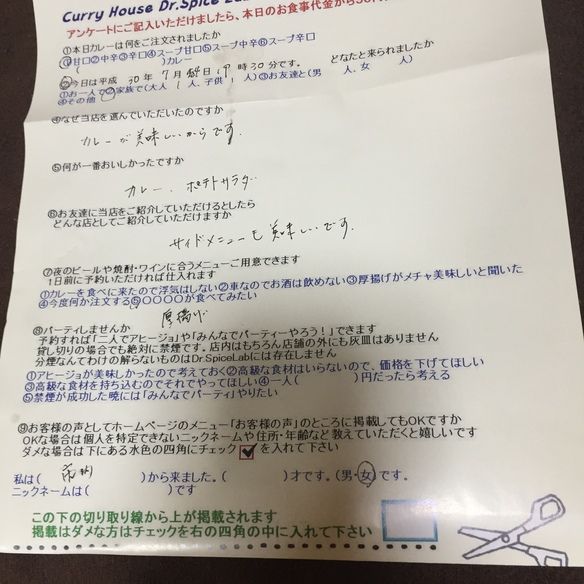 Curry House Dr.Spice
アンケートにご記入いただけましたら、本日のお食事代金から
①本日カレーは何をご注文されましたか
①甘口②中辛③辛口④スープ甘口⑤スープ中辛⑥スープ辛口
( )カレー
②今日は平成 30年 7月 日 19時 30分です。 どなたと来られましたか
①お一人で②家族で(大人 1人、子供 1人)③お友達と(男 人、女 人)
④その他
④なぜ当店を選んでいただいたのですか
カレーが美味しいからです。
⑤何が一番おいしかったですか
カレー、ポテトサラダ
⑥お友達に当店をご紹介していただけるとしたら
どんな店としてご紹介していただけますか
サイドメニューも美味しいです。
⑦夜のビールや焼酎・ワインに合うメニューご用意できます
1日前に予約いただければ仕入れます
①カレーを食べに来たので浮気はしない②車なのでお酒は飲めない③厚揚げがメチャ美味しいと聞いた
④今度何か注文する⑤〇〇〇〇が食べてみたい
厚揚げ
⑧パーティしませんか
予約すれば「二人でアヒージョ」や「みんなでパーティーやろう!」できます
貸し切りの場合でも絶対に禁煙です。店内はもちろん店舗の外にも灰皿はありません
分煙なんてわけの解らないものはDr.SpiceLabには存在しません
①アヒージョが美味しかったので考えておく②高級な食材はいらないので、価格を下げてほしい
③高級な食材を持ち込むのでそれでやってほしい④一人( )円だったら考える
⑤禁煙が成功した暁には「みんなでパーティ」やりたい
⑨お客様の声としてホームページのメニュー「お客様の声」のところに掲載してもOKですか
OKな場合は個人を特定できないニックネームや住所・年齢など教えていただくと嬉しいです
ダメな場合は下にある水色の四角にチェック を入れて下さい
私は( 市川 )から来ました。( )才です。(男・女)です。
ニックネームは( )です
この下の切り取り線から上が掲載されます
掲載はダメな方はチェックを右の四角の中に入れて下さい